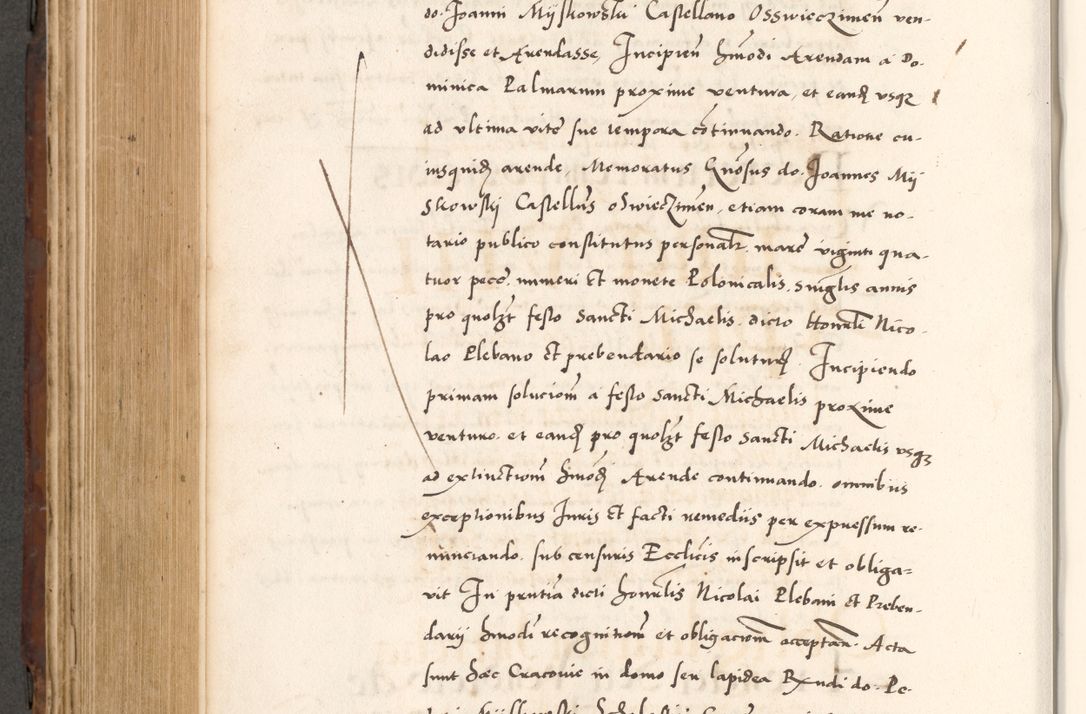 do. Joanni Mijskowskii Castellano Osswieczimeñ ven-
didisse et Arendasse, Incipieñ hmõdi Arendam a Do-
minica Palmarum proxime ventura, et eand vsq
ad vltima vite sue tempora cõtinuando. Ratione cu-
iusquid arende Memoratus Gnõsus do. Joannes Mij
Skowskj Castellus osswieczimeñ, etiam coram me no-
tario publico constitutus personalr. marc viginti qua-
tuor pecc. numeri et monete Polonicalis, singlis annis
pro quolzt festo Sancti Michaelis dicto Honrli Nico-
lao Plebano et prebendario se soluturũ Incipiendo
primam soluciom a festo Sancti Michaelis proxime
venturo. et eand pro quolzt festo Sancti Michaelis vsq
ad extinctiom hmõdj Arende continuando. omnibus
exceptionibus Juris et facti remediis per expressum re-
nunciando. sub censuris Ecclicis inscripsit et obliga=
vit In pntia dicti honrlis Nicolai Plebani et Preben-
darij hmodi recognitiom et obligaciom acceptañ. Acta
sunt hæc Cracovie in domo seu lapidea Rxndi do. Pe-